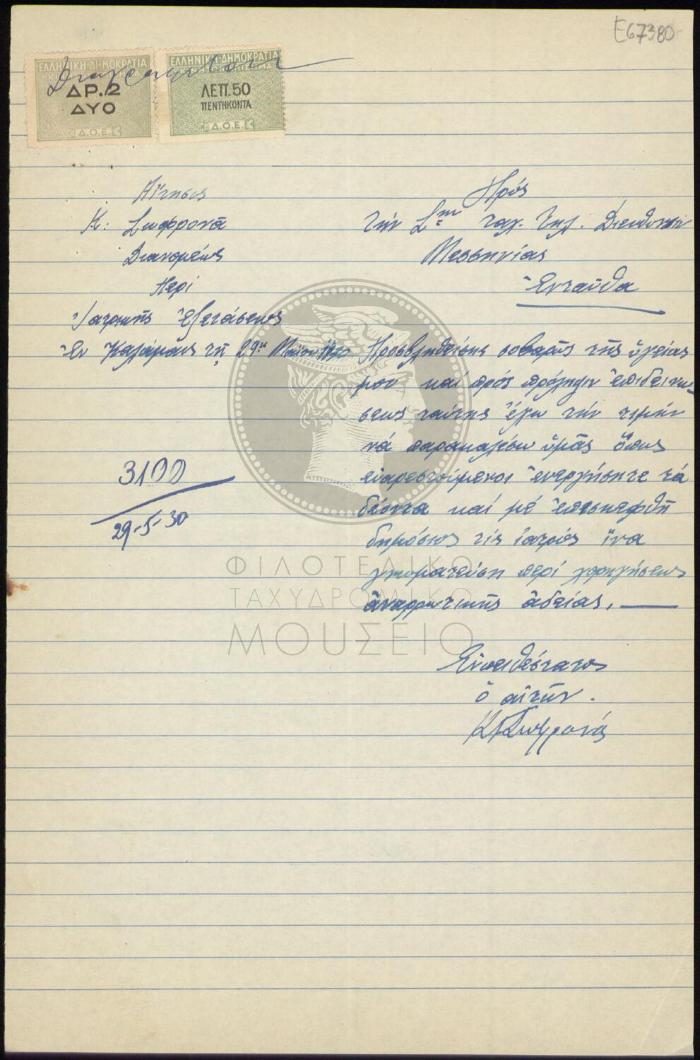 Ε67380
ΕΛΛΗΝΙΚΗ ΔΗΜΟΚΡΑΤΙΑ
ΔΡ.2
ΔΥΟ
Δ.Ο.Ε.
ΕΛΛΗΝΙΚΗ ΔΗΜΟΚΡΑΤΙΑ
ΛΕΠ.50
ΠΕΝΤΗΚΟΝΤΑ
Δ.Ο.Ε.
Αἴτησις
Κ: Σωφρονᾶ
Διανομέως
Περί
Ἰατρικῆς Ἐξετάσεως
Ἐν Καλάμαις τῇ 29ῃ Μαΐου
3100
29-5-30
Πρός
τήν Σην Ταχ. Τηλ. Διεύθυνσιν
Μεσσηνίας
Ἐνταῦθα
Προσβληθείσης σοβαρῶς τῆς ὑγείας
μου καί πρός πρόληψιν ἐπιδεινώ
σεως ταύτης ἔχω τήν τιμήν
νά παρακαλέσω ὑμᾶς ὅπως
εὐαρεστούμενοι ἐνεργήσητε τά
δέοντα καί μέ ἐπισκεφθῇ
δημόσιος τις ἰατρός ἵνα
γνωματεύσῃ περί χορηγήσεως
ἀναρρωτικῆς ἀδείας.
Εὐπειθέστατος
ὁ αἰτῶν.
Κ Σωφρονᾶς
ΦΙΛΟΤΕΛΙΚΟ
ΤΑΧΥΔΡΟΜΙΚΟ
ΜΟΥΣΕΙΟ